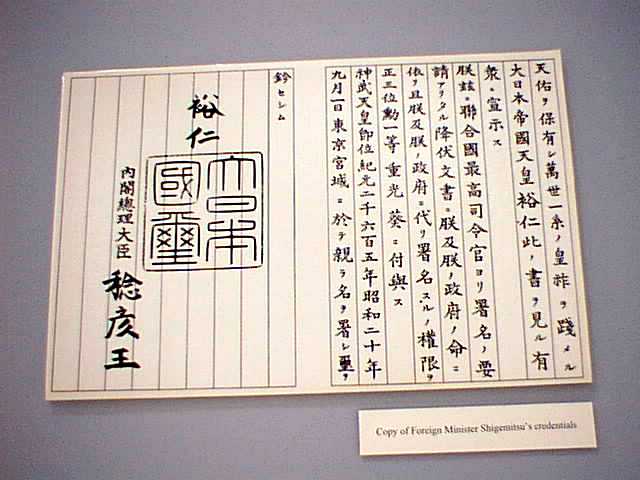 天佑ヲ保有シ萬世一系ノ皇祚ヲ踐メル
大日本帝國天皇裕仁此ノ書ヲ見ル有
衆ニ宣示ス
朕茲ニ聯合國最高司令官ヨリ署名ノ要
請アリタル降伏文書ニ朕及朕ノ政府ノ命ニ
依リ且朕及朕ノ政府ニ代リ署名スルノ權限ヲ
正三位勳一等重光葵ニ付與ス
神武天皇卽位紀元二千六百五年昭和二十年
九月一日東京宮城ニ於テ親ラ名ヲ署シ璽ヲ
鈐セシム
裕仁
大日本
國璽
內閣總理大臣 稔彥王
Copy of Foreign Minister Shigemitsu's credentials